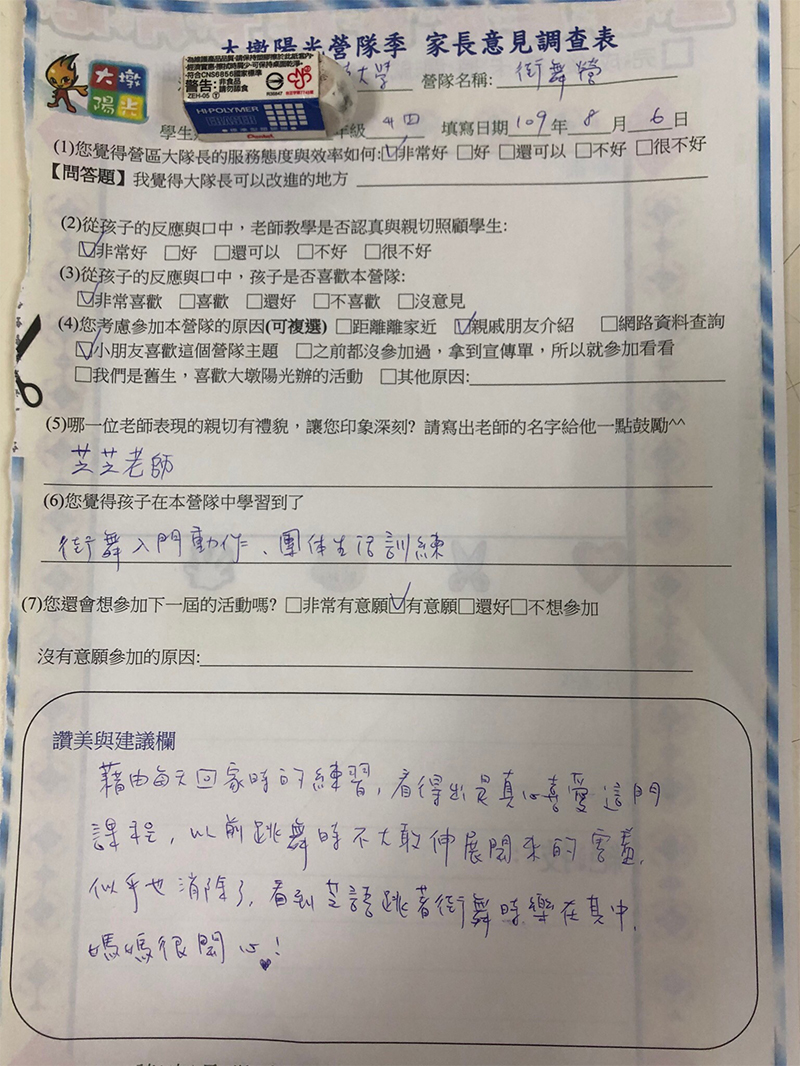 大墩陽光營隊季 家長意見調查表
大墩
陽光
大學 營隊名稱: 街舞營
為維護產品品質,請保持塑膠擦於此紙套內
符合CNS6856國家標準
警告:非食品 請勿舔食
ZEH-05
HI-POLYMER
ERASER
Pentel
學生 年級 四 填寫日期 109 年 8 月 6 日
(1)您覺得營區大隊長的服務態度與效率如何:☑非常好 □好 □還可以 □不好 □很不好
【問答題】我覺得大隊長可以改進的地方
(2)從孩子的反應與口中,老師教學是否認真與親切照顧學生:
☑非常好 □好 □還可以 □不好 □很不好
(3)從孩子的反應與口中,孩子是否喜歡本營隊:
☑非常喜歡 □喜歡 □還好 □不喜歡 □沒意見
(4)您考慮參加本營隊的原因(可複選) □距離離家近 ☑親戚朋友介紹 □網路資料查詢
☑小朋友喜歡這個營隊主題 □之前都沒參加過,拿到宣傳單,所以就參加看看
□我們是舊生,喜歡大墩陽光辦的活動 □其他原因:
(5)哪一位老師表現的親切有禮貌,讓您印象深刻? 請寫出老師的名字給他一點鼓勵^^
芝芝老師
(6)您覺得孩子在本營隊中學習到了
街舞入門動作、團体生活訓練
(7)您還會想參加下一屆的活動嗎? □非常有意願☑有意願□還好□不想參加
沒有意願參加的原因:
讚美與建議欄
藉由每天回家時的練習,看得出是真心喜愛這門
課程,以前跳舞時不大敢伸展開來的害羞,
似乎也消除了,看到芝語跳著街舞時樂在其中,
媽媽很開心!